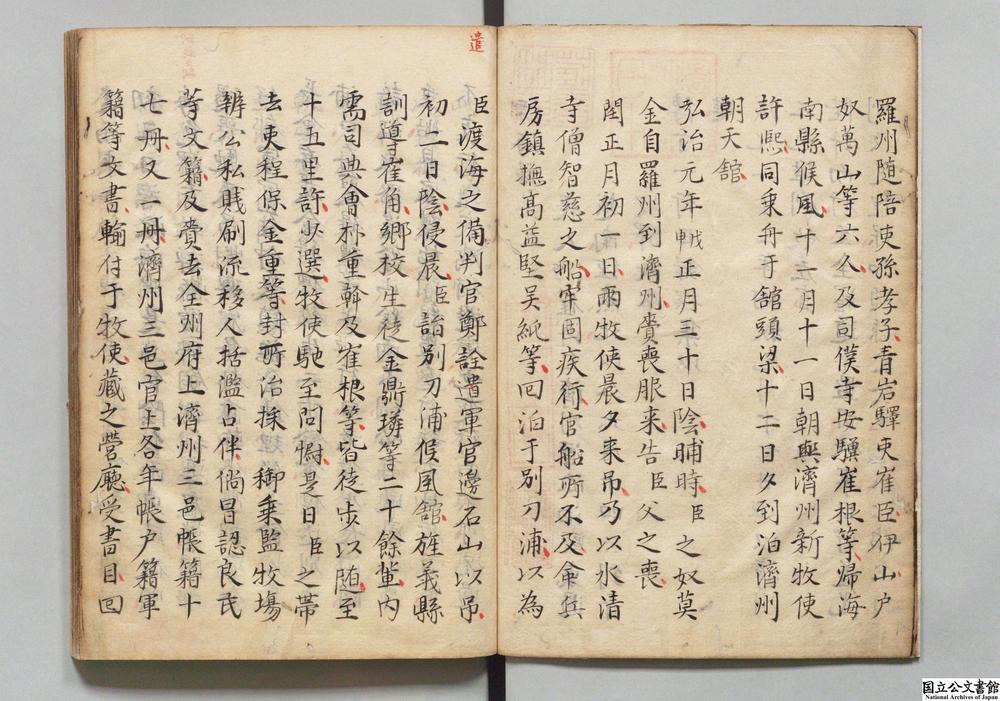 羅州随陪使孫孝子青岩驛吏崔臣伊山戸
奴萬山等六人及司僕寺安驥崔根等歸海
南縣候風十一月十一日朝與濟州新牧使
許熙同乗舟于舘頭梁十二日夕到泊濟州
朝天舘
弘治元年戊申正月三十日陰晡時臣之奴莫
金自羅州到濟州賫喪服来告臣父之喪
閏正月初一日雨牧使晨夕来吊乃以水清
寺僧智慈之船牢固疾行官船所不及命兵
房鎮撫髙益堅吴純等回泊于別刀浦以為
遣
臣渡海之備判官鄭詮遣軍官邊石山以吊
初二日陰侵晨臣詣別刀浦候風舘旌義縣
訓導崔角郷校生徒金鼎璘等二十餘輩内
需司典會朴重幹及崔根等皆徒歩以随至
十五里許少選牧使馳至問慰是日臣之帯
去吏程保金重等封所治採御乗監牧塲
辨公私賎刷流移人括濫占伴倘冒認良民
等文籍及賫去全州府上濟州三邑帳籍十
七冊又一冊濟州三邑官上各年帳户籍軍
籍等文書輸付于牧使藏之營廳受書目回
国立公文書館
National Archives of Japan